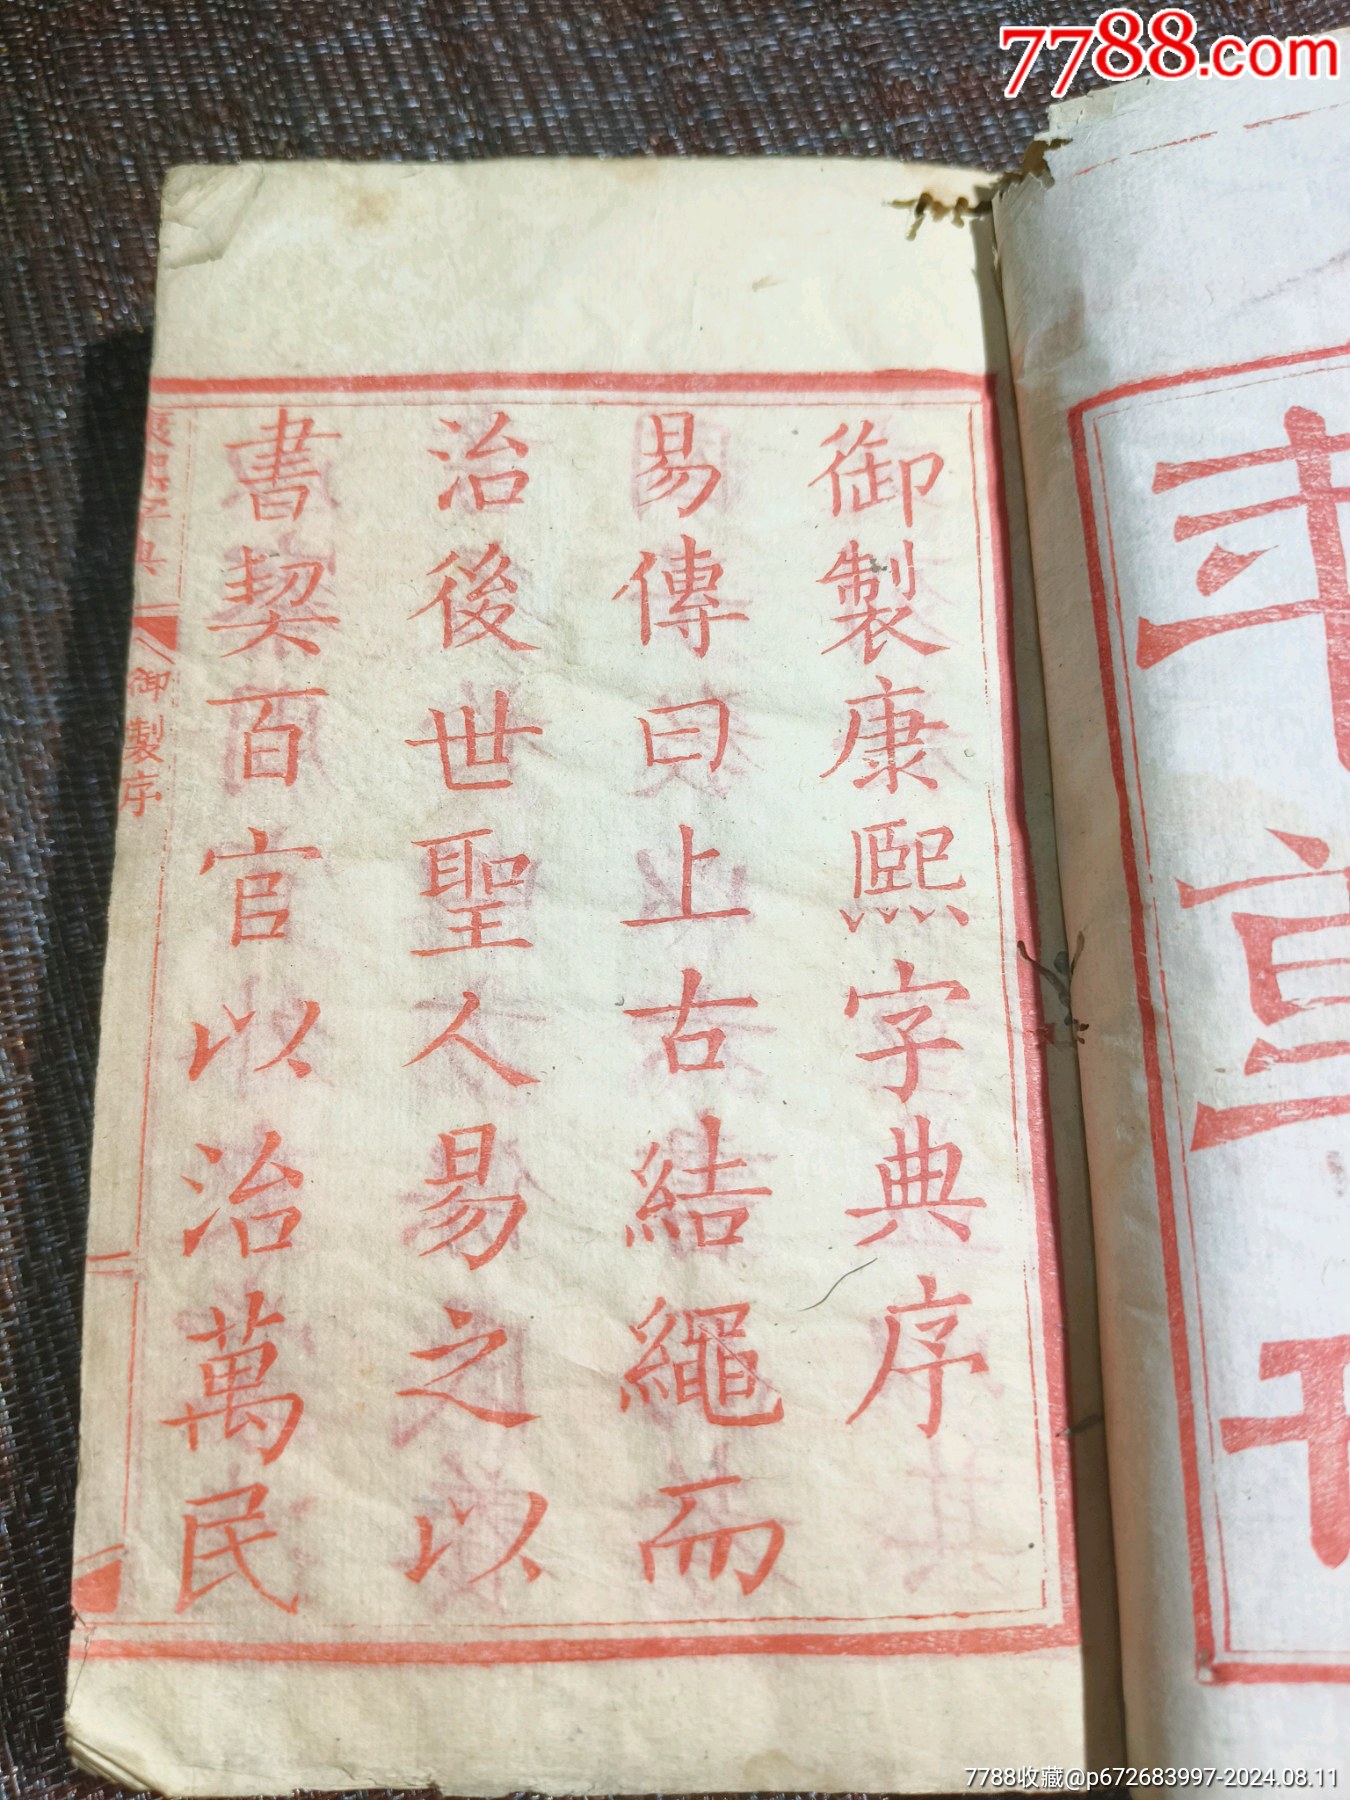 7788.com
御製康熙字典序
易傳曰上古結繩而
治後世聖人易之以
書契百官以治萬民
康熙字典
御製序
7788收藏@p672683997-2024.08.11